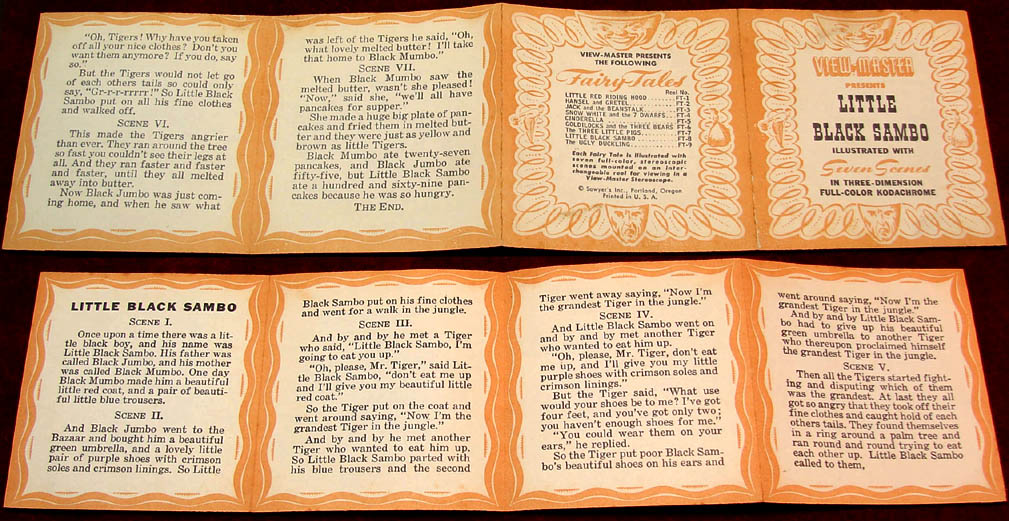 "Oh, Tigers! Why have you taken
off all your nice clothes? Don't you
want them anymore? If you do, say
so."
But the Tigers would not let go
of each others tails so could only
say, "Gr-r-r-rrrr!!" So Little Black
Sambo put on all his fine clothes
and walked off.
SCENE VI.
This made the Tigers angrier
than ever. They ran around the tree
so fast you couldn't see their legs at
all. And they ran faster and faster
and faster, until they all melted
away into butter.
Now Black Jumbo was just com-
ing home, and when he saw what
was left of the Tigers he said, "Oh,
what lovely melted butter! I'll take
that home to Black Mumbo."
SCENE VII.
When Black Mumbo saw the
melted butter, wasn't she pleased!
"Now," said she, "we'll all have
pancakes for supper."
She made a huge big plate of pan-
cakes and fried them in melted but-
ter and they were just as yellow and
brown as little Tigers.
Black Mumbo ate twenty-seven
pancakes, and Black Jumbo ate
fifty-five, but Little Black Sambo
ate a hundred and sixty-nine pan-
cakes because he was so hungry.
THE END.
VIEW-MASTER PRESENTS
THE FOLLOWING
Fairy Tales
Reel No.
LITTLE RED RIDING HOOD FT-1
HANSEL and GRETEL FT-2
JACK and the BEANSTALK FT-3
SNOW WHITE and the 7 DWARFS FT-4
CINDERELLA FT-5
GOLDILOCKS and the THREE BEARS FT-6
The THREE LITTLE PIGS FT-7
LITTLE BLACK SAMBO FT-8
The UGLY DUCKLING FT-9
Each Fairy Tale is illustrated with
seven full-color, stereoscopic
scenes mounted on an inter-
changeable reel for viewing in a
View-Master Stereoscope.
© Sawyer's Inc., Portland, Oregon
Printed in U. S. A.
VIEW-MASTER
PRESENTS
LITTLE
BLACK SAMBO
ILLUSTRATED WITH
Seven Scenes
IN THREE-DIMENSION
FULL-COLOR KODACHROME
LITTLE BLACK SAMBO
SCENE I.
Once upon a time there was a lit-
tle black boy, and his name was
Little Black Sambo. His father was
called Black Jumbo, and his mother
was called Black Mumbo. One day
Black Mumbo made him a beautiful
little red coat, and a pair of beauti-
ful little blue trousers.
SCENE II.
And Black Jumbo went to the
Bazaar and bought him a beautiful
green umbrella, and a lovely little
pair of purple shoes with crimson
soles and crimson linings. So Little
Black Sambo put on his fine clothes
and went for a walk in the jungle.
SCENE III.
And by and by he met a Tiger
who said, "Little Black Sambo, I'm
going to eat you up."
"Oh, please, Mr. Tiger," said Lit-
tle Black Sambo, "don't eat me up
and I'll give you my beautiful little
red coat."
So the Tiger put on the coat and
went around saying, "Now I'm the
grandest Tiger in the jungle."
And by and by he met another
Tiger who wanted to eat him up.
So Little Black Sambo parted with
his blue trousers and the second
Tiger went away saying, "Now I'm
the grandest Tiger in the jungle."
SCENE IV.
And Little Black Sambo went on
and by and by met another Tiger
who wanted to eat him up.
"Oh, please, Mr. Tiger, don't eat
me up, and I'll give you my little
purple shoes with crimson soles and
crimson linings."
But the Tiger said, "What use
would your shoes be to me? I've got
four feet, and you've got only two;
you haven't enough shoes for me."
"You could wear them on your
ears," he replied.
So the Tiger put poor Black Sam-
bo's beautiful shoes on his ears and
went around saying, "Now I'm the
grandest Tiger in the jungle."
And by and by Little Black Sam-
bo had to give up his beautiful
green umbrella to another Tiger
who thereupon proclaimed himself
the grandest Tiger in the jungle.
SCENE V.
Then all the Tigers started fight-
ing and disputing which of them
was the grandest. At last they all
got so angry that they took off their
fine clothes and caught hold of each
others tails. They found themselves
in a ring around a palm tree and
ran round and round trying to eat
each other up. Little Black Sambo
called to them,